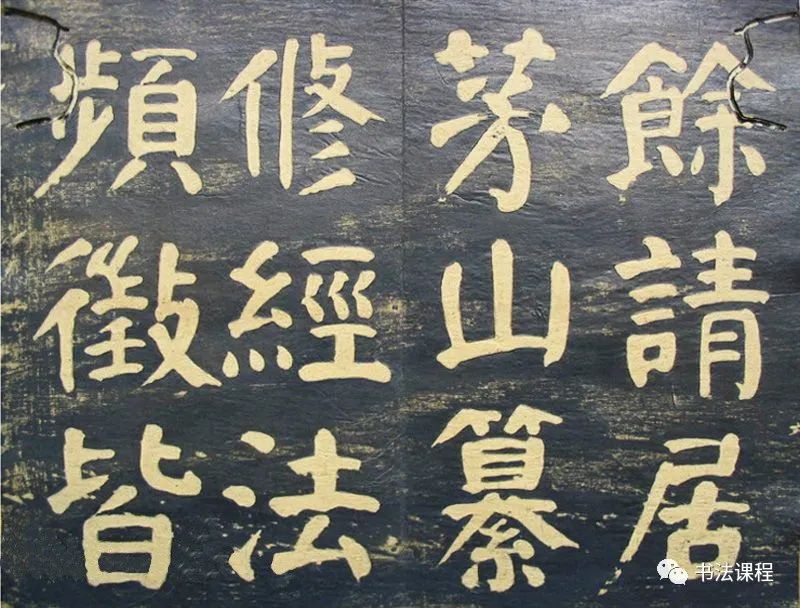 餘請居
茅山纂
修經法
頻徵皆
书法课程